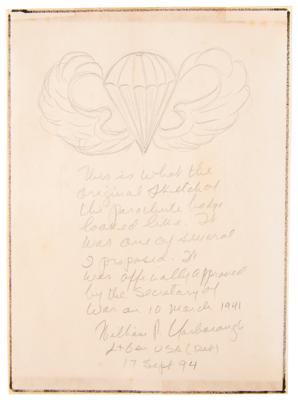 This is what the
original sketch of
the parachute badge
looked like. It
was one of several
I proposed. It
was officially approved
by the Secretary of
War on 10 March 1941
William P. Yarborough
Lt Gen USA (Ret)
17 Sept 94